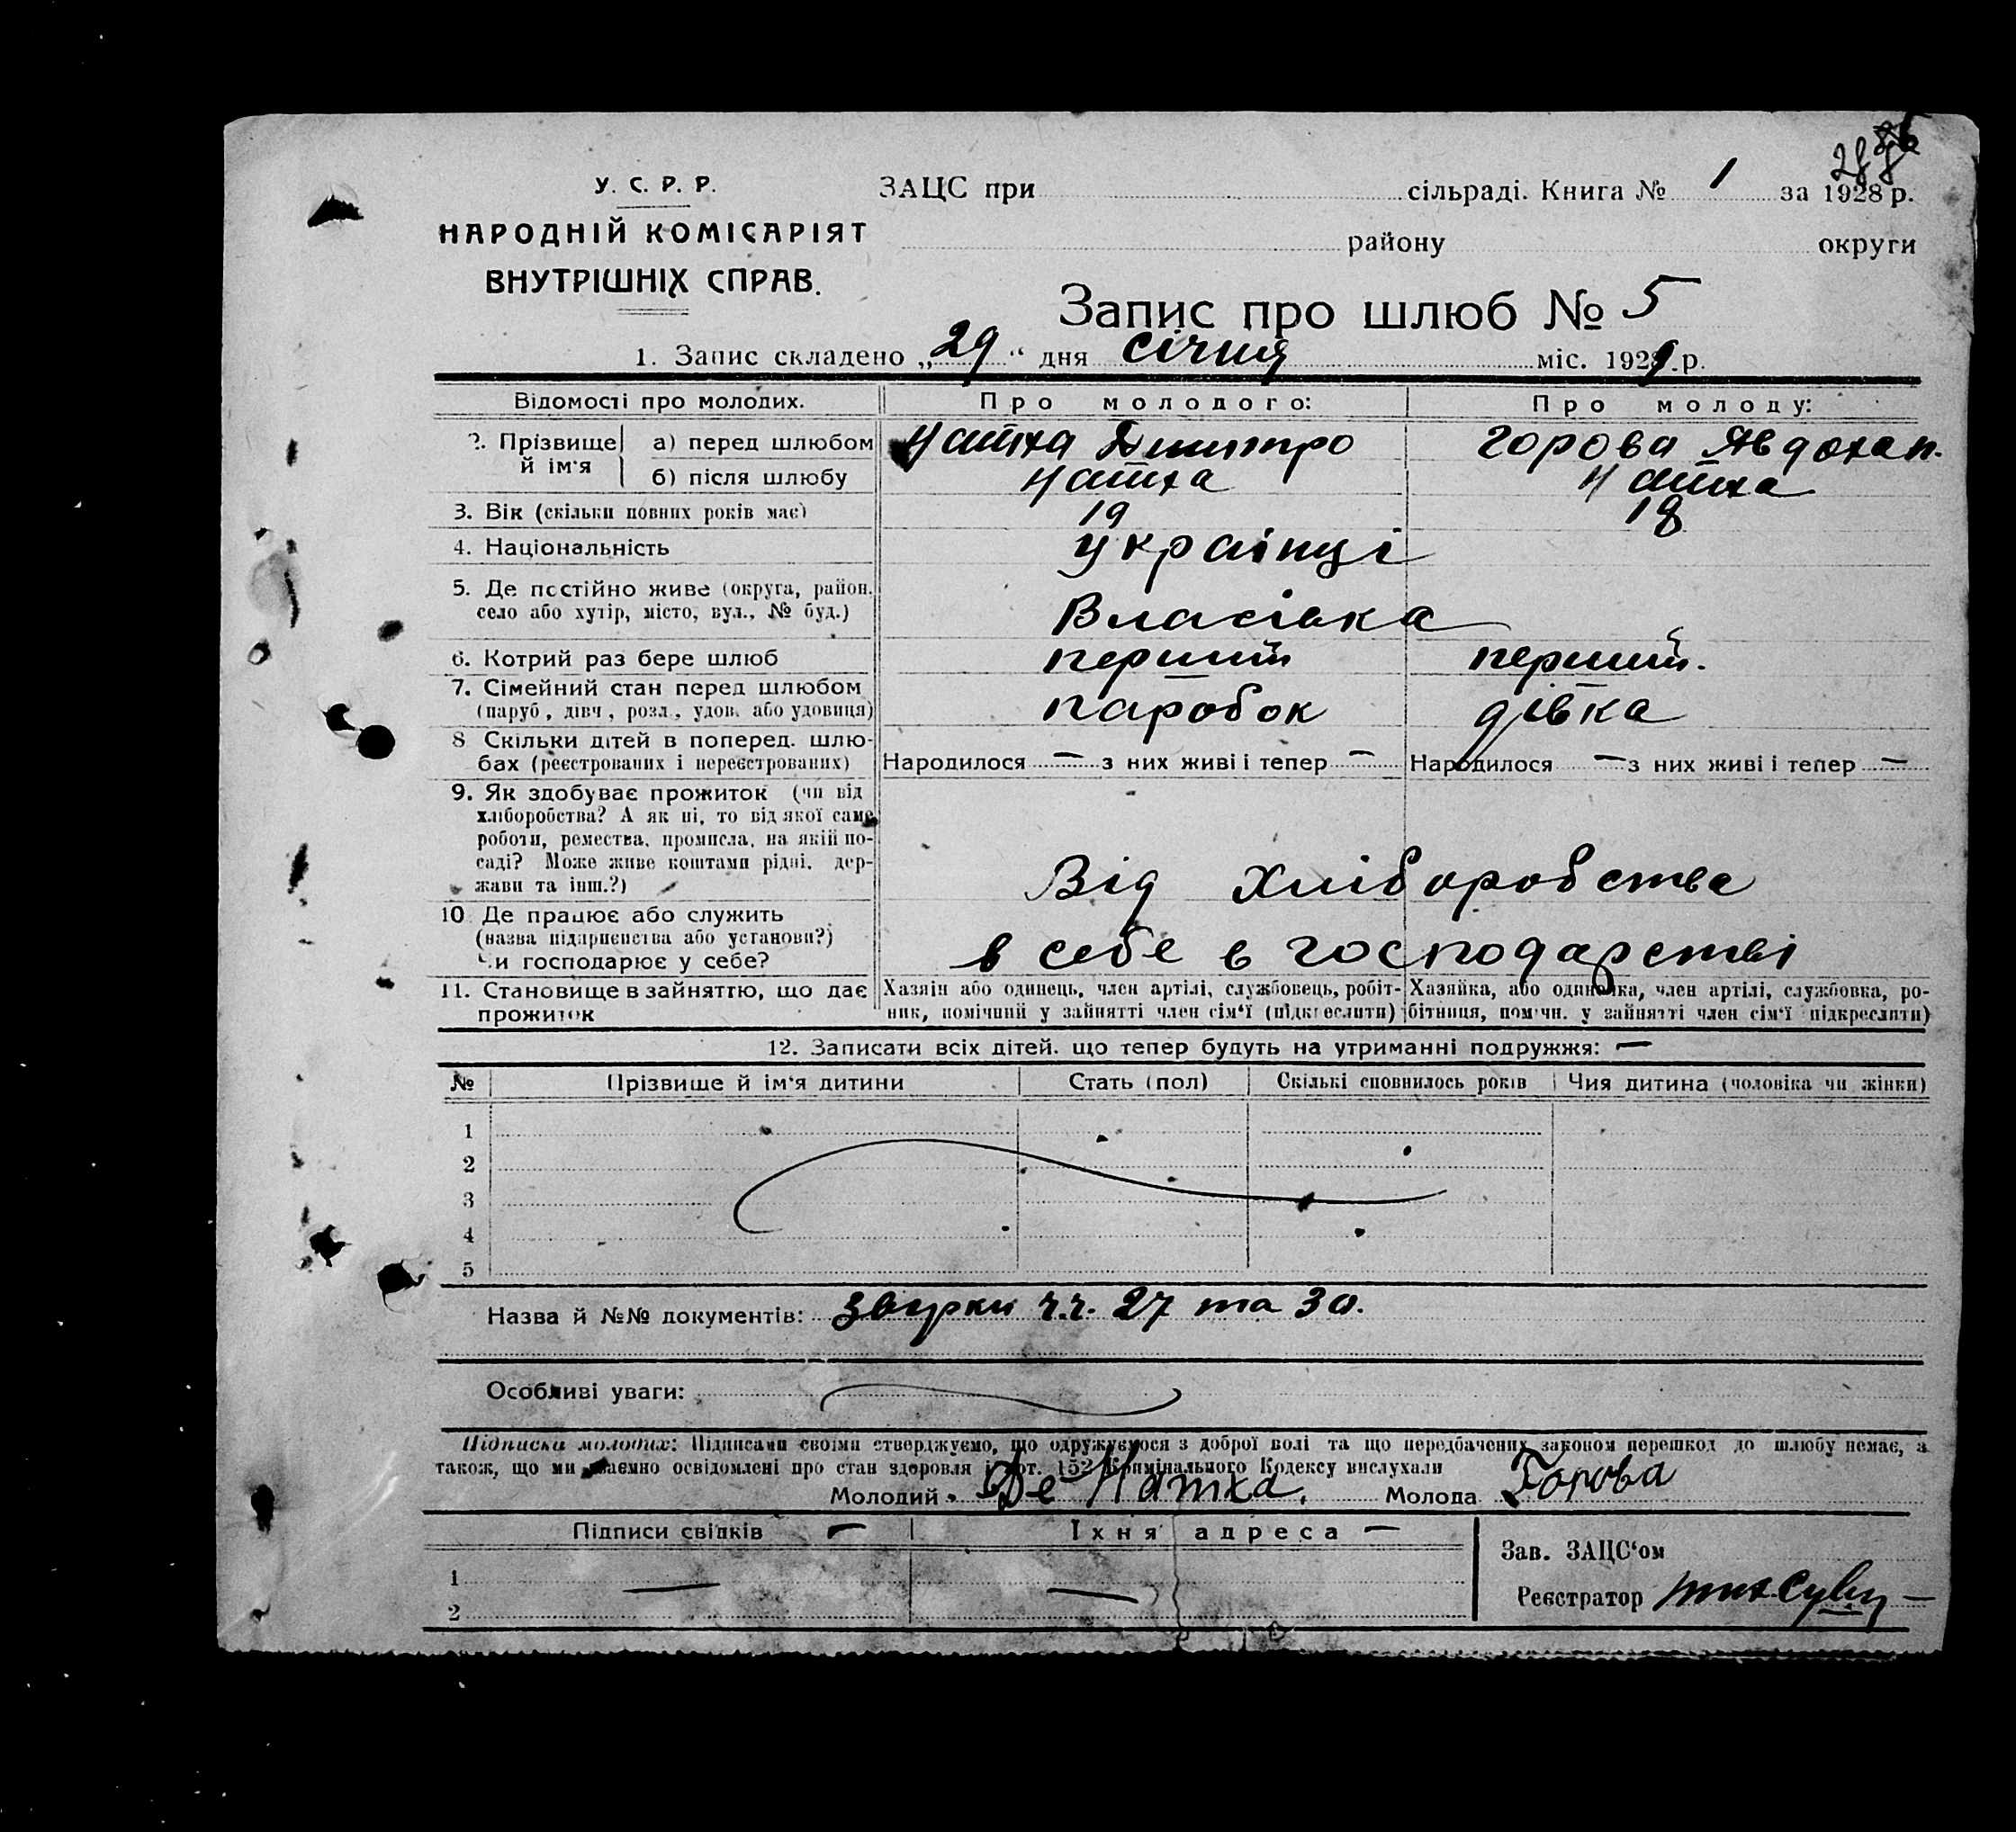 У. С. Р. Р.
НАРОДНІЙ КОМІСАРІЯТ
ВНУТРІШНІХ СПРАВ.
ЗАЦС при сільраді. Книга № 1 за 1928 р.
району округи
Запис про шлюб № 5
1. Запис складено „29“ дня січня міс. 1929 р.
Відомості про молодих. Про молодого: Про молоду:
2. Прізвище й ім'я
а) перед шлюбом Натха Дмитро Горова Явдоха п.
б) після шлюбу Натха Натха
3. Вік (скільки повних років має) 19 18
4. Національність Українці
5. Де постійно живе (округа, район,
село або хутір, місто, вул., № буд.) Власівка
6. Котрий раз бере шлюб перший перший.
7. Сімейний стан перед шлюбом
(паруб, дівч, розл., удов. або удовиця) паробок дівка
8 Скільки дітей в поперед. шлю-
бах (реєстрованих і нереєстрованих) Народилося — з них живі і тепер — Народилося — з них живі і тепер —
9. Як здобуває прожиток (чи від
хліборобства? А як ні, то від якої саме
роботи, ремества, промисла, на якій по-
саді? Може живе коштами рідні, дер-
жави та інш.?) Від хліборобства
10 Де працює або служить
(назва підприємства або установи?)
Чи господарює у себе? в себе в господарстві
11. Становище в зайняттю, що дає
прожиток
Хазяїн або одинець, член артілі, службовець, робіт-
ник, помічний у зайнятті член сім'ї (підкреслити)
Хазяйка, або одиначка, член артілі, службовка, ро-
бітниця, помічн. у зайнятті член сім'ї підкреслити)
12. Записати всіх дітей, що тепер будуть на утриманні подружжя: —
№ Прізвище й ім'я дитини Стать (пол) Скількі сповнилось років Чия дитина (чоловіка чи жінки)
1
2
3
4
5
Назва й №№ документів: Звірки ч.ч. 27 та 30.
Особливі уваги:
Підписи молодих: Підписами своїми стверджуємо, що одружуємося з доброї волі та що передбачених законом перешкод до шлюбу немає, а
також, що ми взаємно освідомлені про стан здоровля і арт. 152 Кримінального Кодексу вислухали
Молодий Натха. Молода Горова
Підписи свідків — Їхня адреса —
1 — —
2
Зав. ЗАЦС'ом
Реєстратор